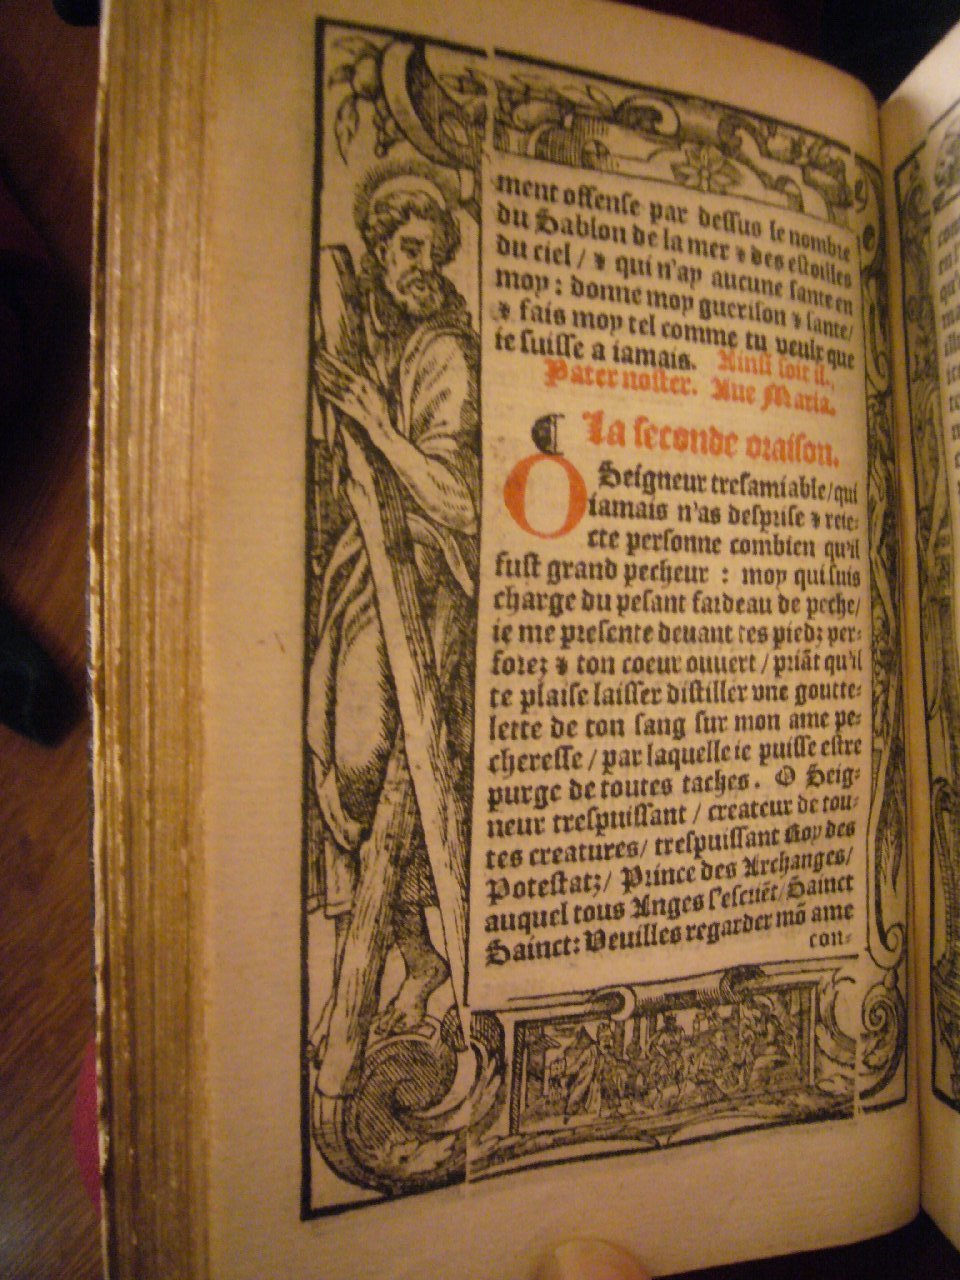 ment offense par dessus le nombre
du Sablon de la mer & des estoilles
du ciel / & qui n'ay aucune sante en
moy : donne moy guerison & sante/
& fais moy tel comme tu veulx que
ie suisse a iamais. Ainsi soit il.
Pater noster. Aue Maria.
¶ La seconde oraison.
O Seigneur tresamiable/qui
iamais n'as desprise & reie-
cte personne combien qu'il
fust grand pecheur : moy qui suis
charge du pesant fardeau de peche/
ie me presente deuant tes piedz per-
forez & ton coeur ouuert / priãt qu'il
te plaise laisser distiller vne goutte-
lette de ton sang sur mon ame pe-
cheresse / par laquelle ie puisse estre
purge de toutes taches. O Seig-
neur trespuissant / createur de tou-
tes creatures/ trespuissant Roy des
Potestatz/ Prince des Archanges/
auquel tous Anges s'escriẽt/Sainct
Sainct: Veuilles regarder mõ ame
con-